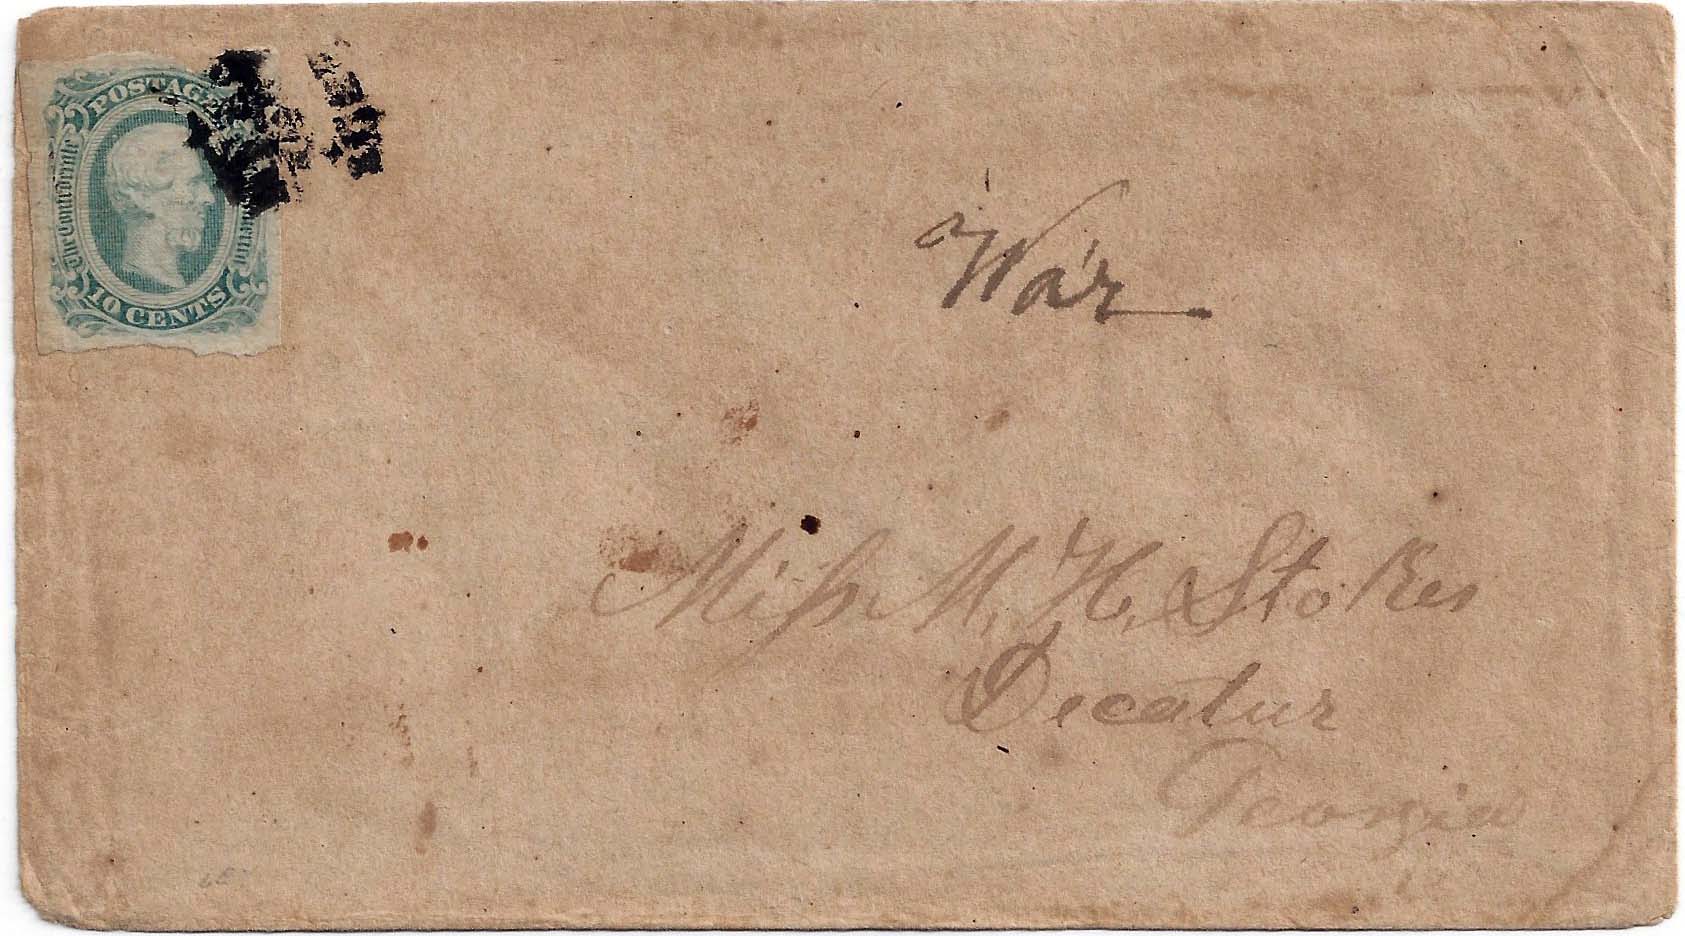 POSTAGE
The Confederate
10 CENTS
War
Miss M. H. Stokes
Decatur
Georgia